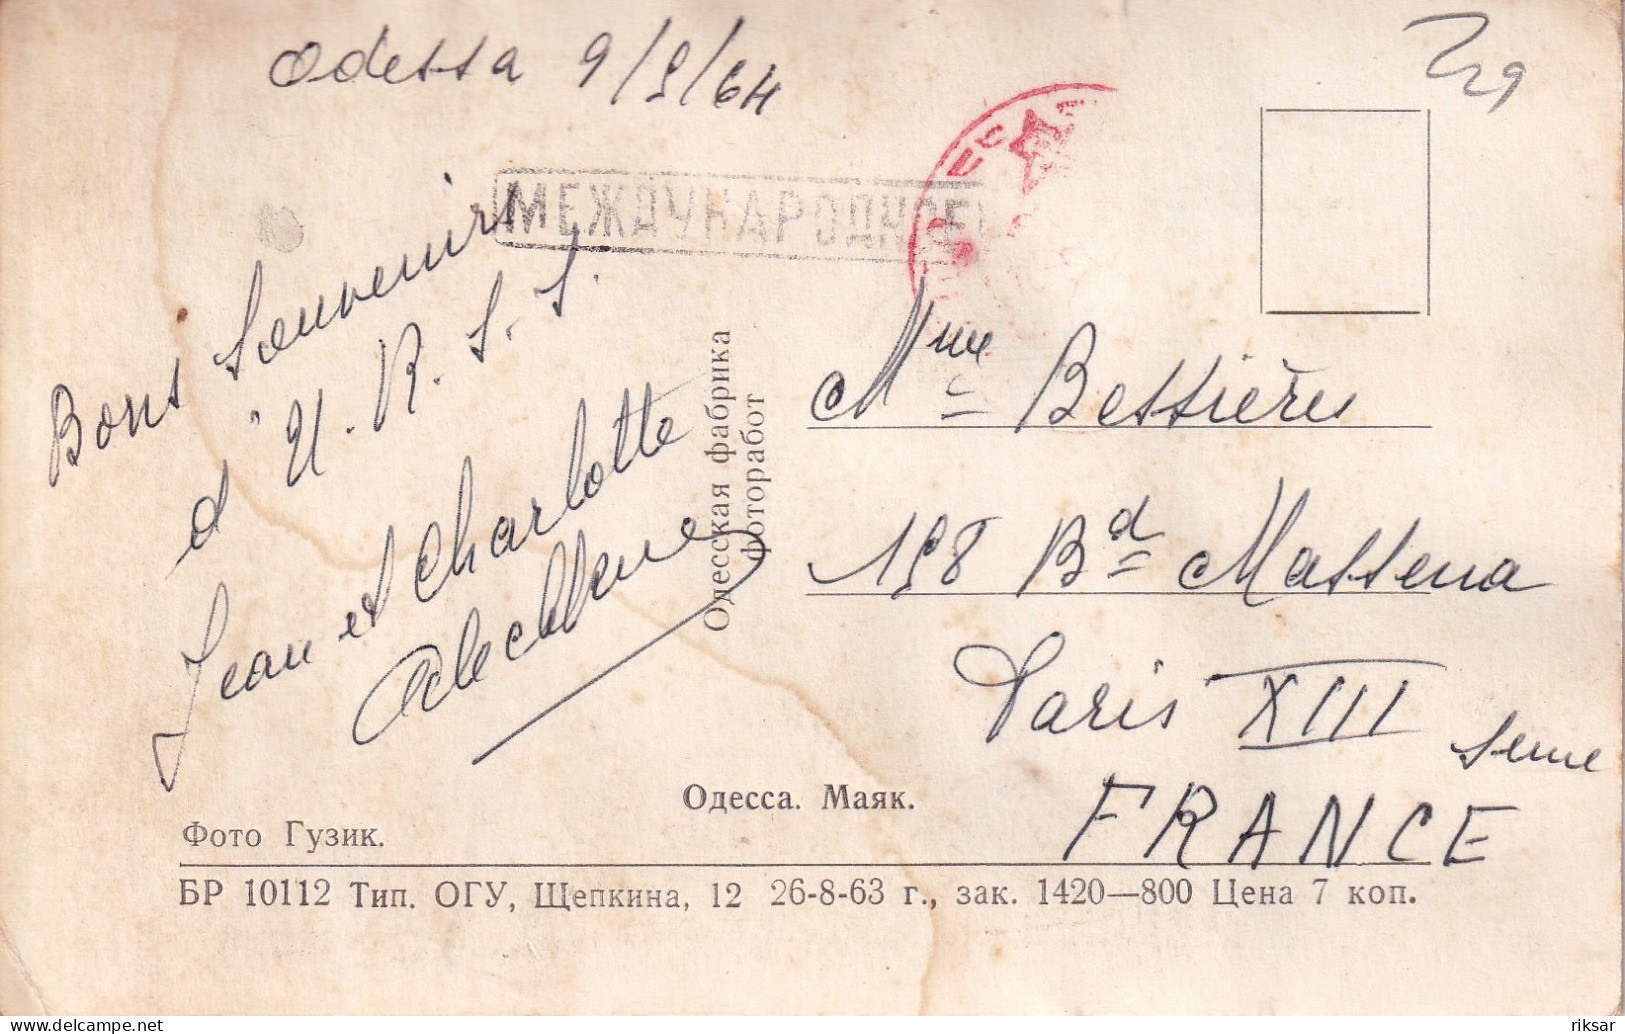 Odessa 9/9/64
229
МЕЖДУНАРОДНОЕ
Bons Souvenirs
d'U.R.S.S.
Jean et Charlotte
Одесская фабрика
фоторабот
Mme Bessières
198 Bd Massena
Paris XIII
eme
FRANCE
Одесса. Маяк.
Фото Гузик.
БР 10112 Тип. ОГУ, Щепкина, 12 26-8-63 г., зак. 1420—800 Цена 7 коп.
riksar